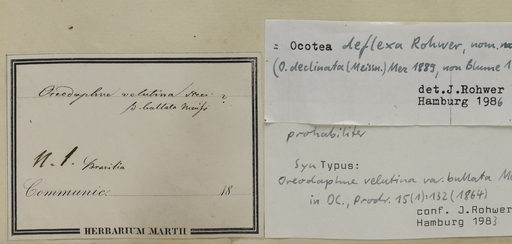 Oreodaphne velutina Nees ?
β. bullata Meisn
n. 1. Brasilia
Communic. 18
HERBARIUM MARTII
= Ocotea deflexa Rohwer, nom.
(O. declinata (Meissn.) Mez 1889, non Blume 1
det. J.Rohwer
Hamburg 1986
probabiliter
Syn Typus:
Oreodaphne velutina var. bullata
in DC., Prodr. 15(1): 132 (1864)
conf. J.Rohwer
Hamburg 1983